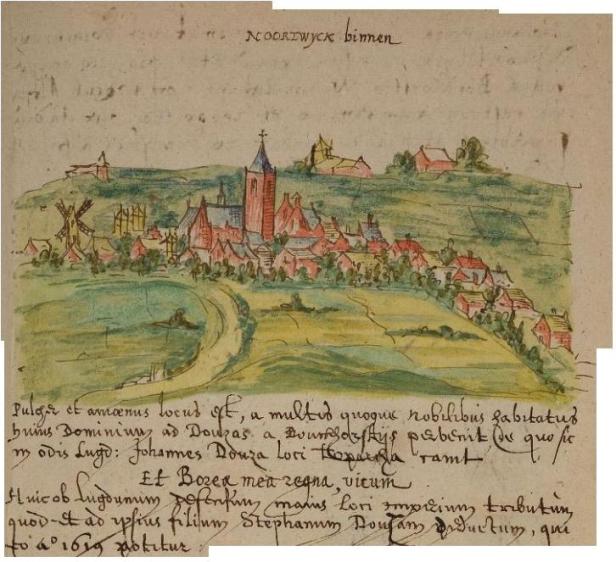 NOORTWYCK binnen
Pulcher et amœnus locus est, a multis quoque nobilibus habitatus
huius Dominium ad Douzas a Bourchorstijs pervenit de quo sic
in odis Lugd: Johannes Douza loci canit
Et Borea mea regna, vicum
Huic ob Lugdunum defensum maius loci imperium tributum
quod et ad ipsius filium Stephanum Douzam deductum, qui
eo aº 1619 potitur.